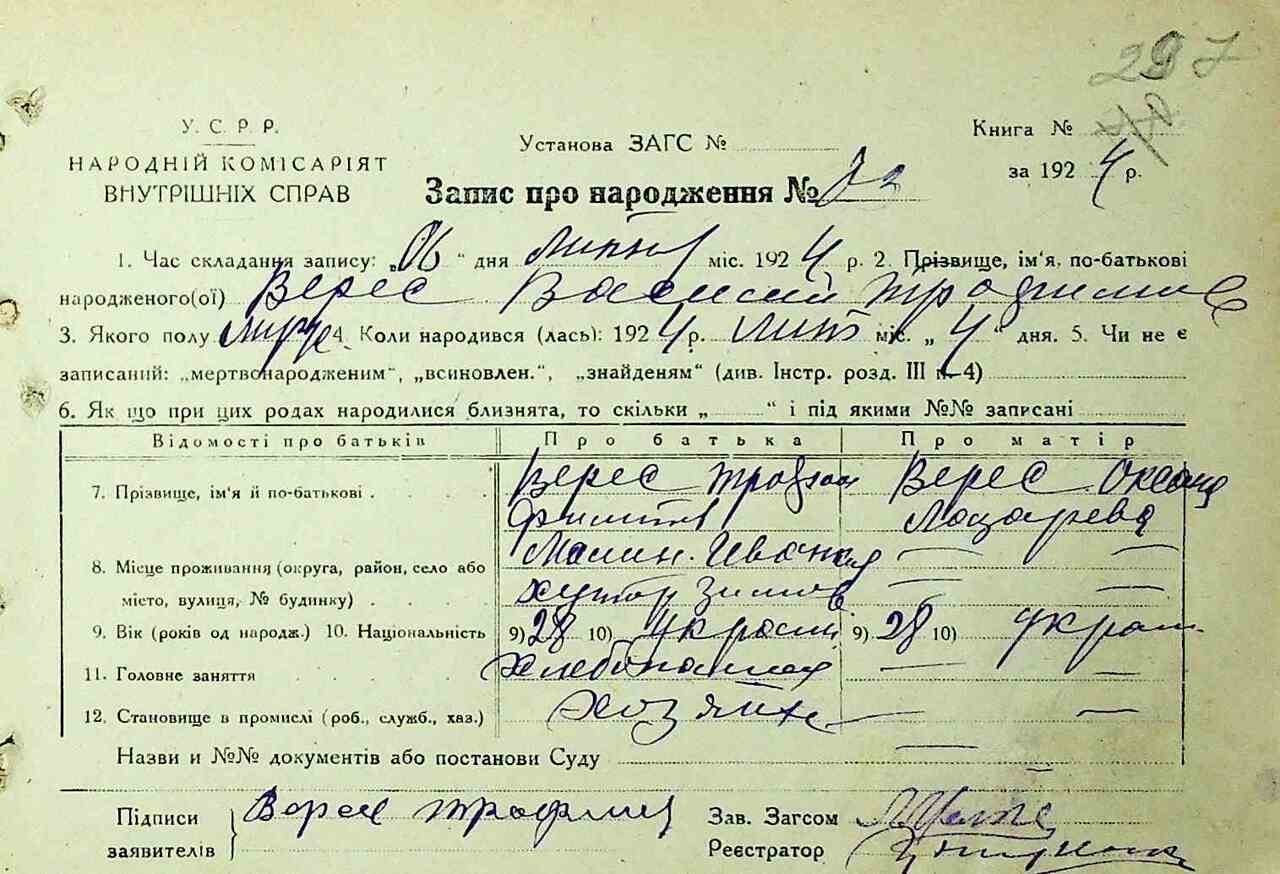 297
У. С. Р. Р.
НАРОДНІЙ КОМІСАРІЯТ
ВНУТРІШНІХ СПРАВ
Установа ЗАГС №
Книга №
за 1924 р.
Запис про народження №
1. Час складання запису: „06" дня міс. 1924 р. 2. Прізвище, ім'я, по-батькові
народженого(ої) Верес Василий Трофимов
3. Якого полу 4. Коли народився (лась): 1924 р. міс. „4" дня. 5. Чи не є
записаний: „мертвонародженим", „всиновлен.", „знайденям" (див. Інстр. розд. III п. 4)
6. Як що при цих родах народилися близнята, то скільки „ " і під якими №№ записані
Відомості про батьків Про батька Про матір
7. Прізвище, ім'я й по-батькові . . . . Верес Трофим Верес Оксана
Лазарева
8. Місце проживання (округа, район, село або
місто, вулиця, № будинку) . . . . хутор
9. Вік (років од народж.) 10. Національність 9) 28 10) 9) 28 10) украин.
11. Головне заняття . . . . Хлебопашец —
12. Становище в промислі (роб., служб., хаз.) Хозяин — —
Назви и №№ документів або постанови Суду —
Підписи
заявителів
Верес Трофим
Зав. Загсом
Реєстратор